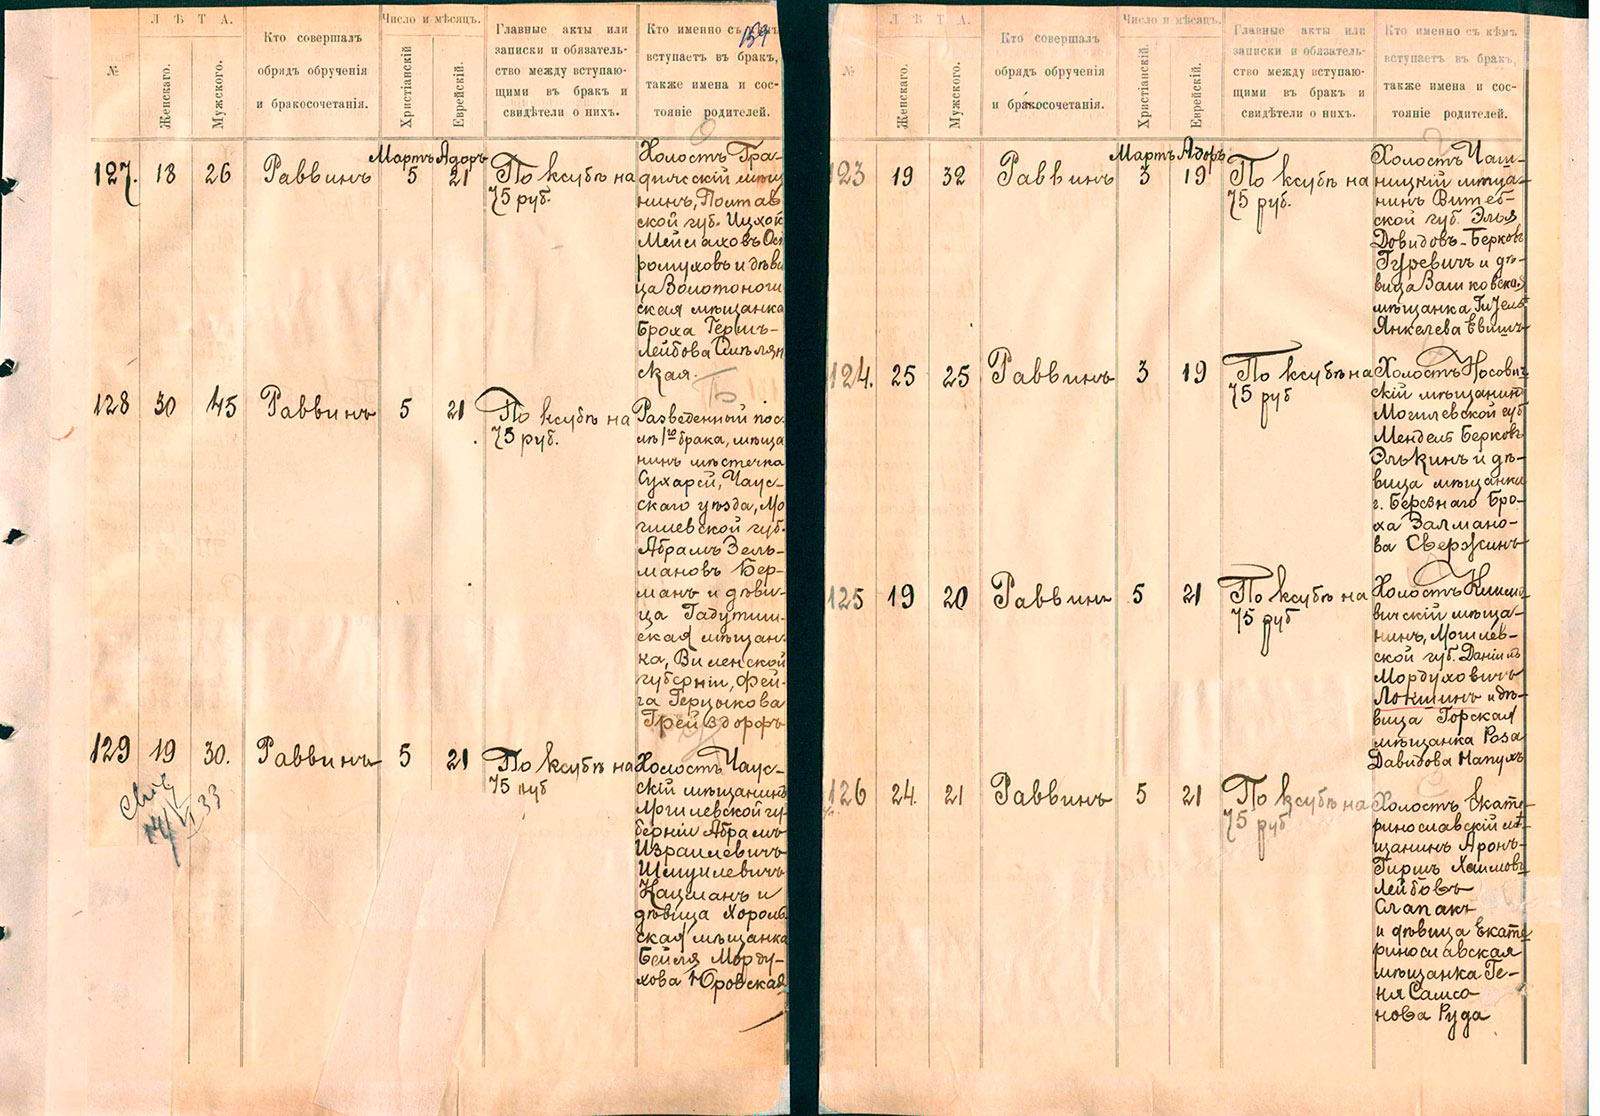 159
№
ЛѢТА.
Женскаго.
Мужского.
Кто совершалъ
обрядъ обрученія
и бракосочетанія.
Число и мѣсяцъ.
Христіанскій
Еврейскій.
Главные акты или
записки и обязатель-
ство между вступаю-
щими въ бракъ и
свидѣтели о нихъ.
Кто именно съ кѣмъ
вступаетъ въ бракъ,
также имена и сос-
тояніе родителей.
127. 18 26 Раввинъ Мартъ 5 Адоръ 21 По ксубѣ на
75 руб.
Холостъ Гра-
дижскій мѣща
нинъ, Полтав
ской губ. Ицхок
Мейлаховъ Ост
ромуховъ и дѣви
ца Золотоног
ская мѣщанка
Броха Герш-
Лейбова Смѣлян
ская.
128 30 45 Раввинъ 5 21 По ксубѣ на
75 руб.
Разведенный пос-
лѣ 1го брака, мѣща
нинъ мѣстечка
Сухарей, Чаус-
скаго уѣзда, Мо
гилевской губ.
Абрамъ Зель-
мановъ Бер-
манъ и дѣви-
ца Гадутиш-
ская мѣщан-
ка, Виленской
губерніи, Фей-
га Герцыкова
Грейздорфъ
129 19 30. Раввинъ 5 21 По ксубѣ на
75 руб
Холостъ Чаус-
скій мѣщанинъ
Могилевской гу
берніи Абрамъ
Израилевичъ
Шмуилевичъ
Кацманъ и
дѣвица Хороль
ская мѣщанка
Бейля Морду-
хова Юровская
33
№
ЛѢТА.
Женскаго.
Мужского.
Кто совершалъ
обрядъ обрученія
и бракосочетанія.
Число и мѣсяцъ.
Христіанскій
Еврейскій.
Главные акты или
записки и обязатель-
ство между вступаю-
щими въ бракъ и
свидѣтели о нихъ.
Кто именно съ кѣмъ
вступаетъ въ бракъ,
также имена и сос-
тояніе родителей.
123 19 32 Раввинъ Мартъ 3 Адоръ 19 По ксубѣ на
75 руб.
Холостъ Чаш-
ницкій мѣща-
нинъ Витеб-
ской губ. Элья
Довидовъ-Берковъ
Гуревичъ и дѣ-
вица Вашковская
мѣщанка
Янкелева Евишъ
124. 25 25 Раввинъ 3 19 По ксубѣ на
75 руб
Холостъ Носович
скій мѣщанинъ
Могилевской губ
Мендель Берковъ
Элькинъ и дѣ-
вица мѣщанка
г. Березнаго Бро-
ха Залмано-
ва Свержинъ
125 19 20 Раввинъ 5 21 По ксубѣ на
75 руб
Холостъ Климо
вичскій мѣща-
нинъ, Могилев-
ской губ. Даніилъ
Мордуховичъ
Локшинъ и дѣ-
вица Горская
мѣщанка Роза
Давидова Напухъ
126 24 21 Раввинъ 5 21 По ксубѣ на
75 руб
Холостъ Екате
ринославскій мѣ
щанинъ Аронъ-
Гиршъ Хаимовъ
Лейбовъ
Слапакъ
и дѣвица Екате
ринославская
мѣщанка Ге-
ня Самсо
нова Руда